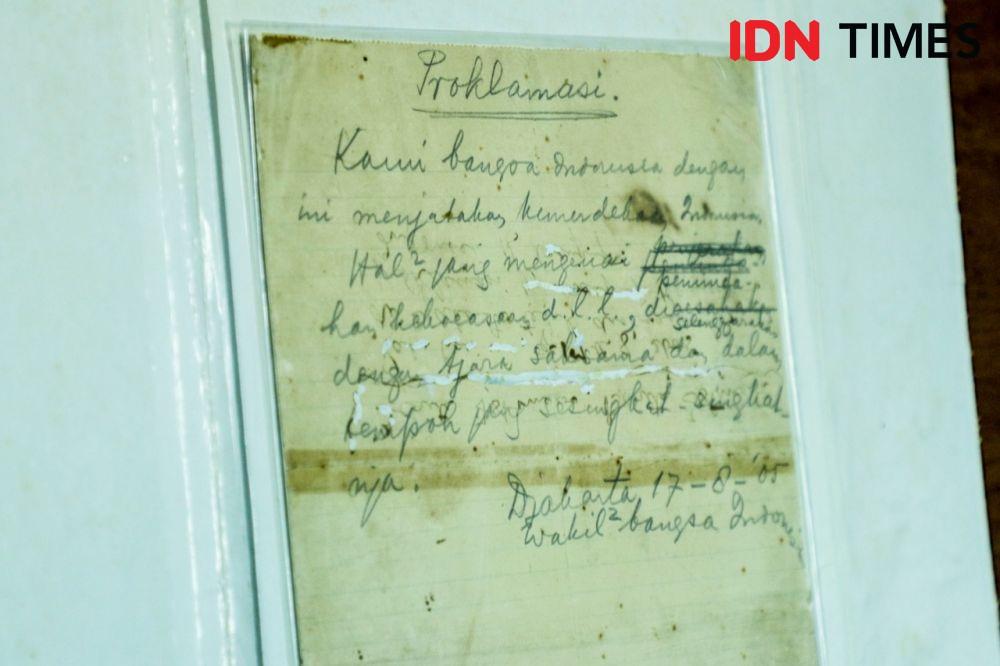 IDN TIMES
Proklamasi.
Kami bangsa Indonesia dengan
ini menjatakan kemerdekaan Indonesia.
Hal² jang mengenai
peminda-
han kekoeasaan, d.l.l., dioesahakan
selenggarakan
dengan tjara saksama dan dalam
tempoh jang sesingkat-singkat-
nja.
Djakarta, 17-8-'05
Wakil² bangsa Indonesia